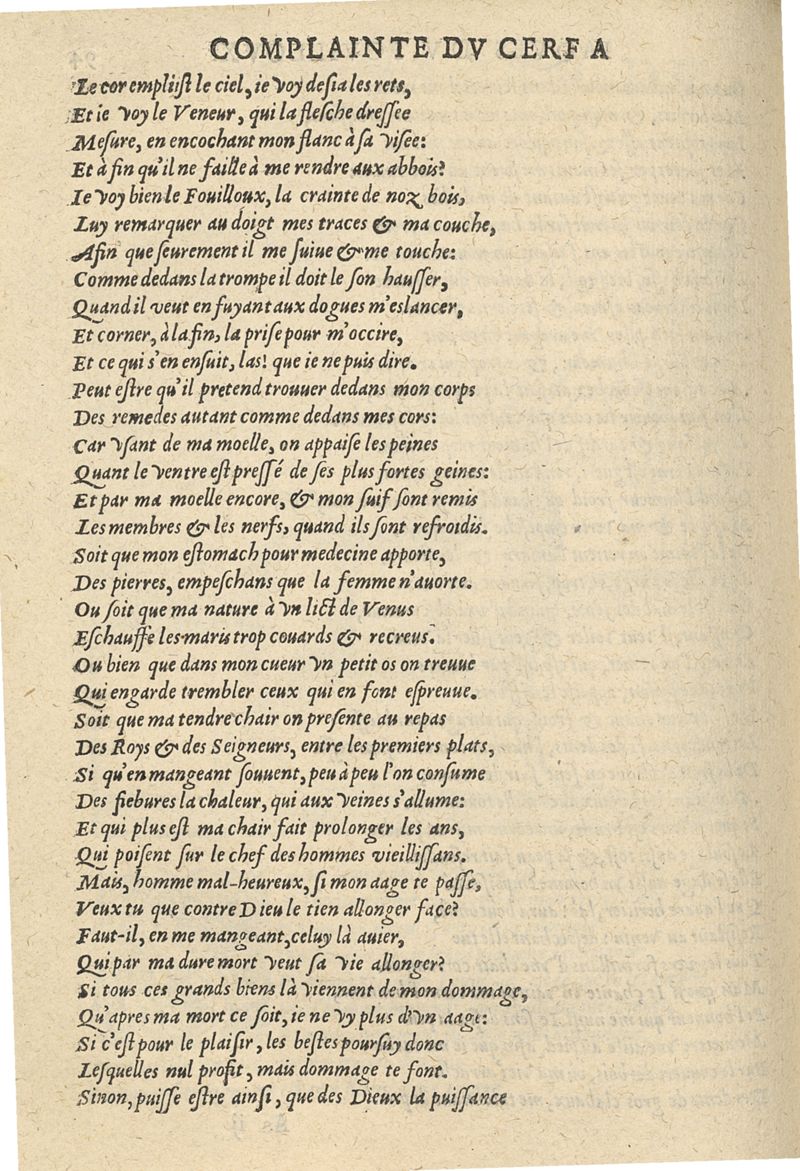 COMPLAINTE DV CERF A
Le cor emplist le ciel, ie voy desia les rets,
Et ie voy le Veneur, qui la flesche dressee
Mesure, en encochant mon flanc à sa visee:
Et à fin qu'il ne faille à me rendre aux abbois?
Ie voy bien le Fouilloux, la crainte de noz bois,
Luy remarquer au doigt mes traces & ma couche,
Afin que seurement il me suiue & me touche:
Comme dedans la trompe il doit le son hausser,
Quand il veut en fuyant aux dogues m'eslancer,
Et corner, à la fin, la prise pour m'occire,
Et ce qui s'en ensuit, las! que ie ne puis dire.
Peut estre qu'il pretend trouuer dedans mon corps
Des remedes autant comme dedans mes cors:
Car vsant de ma moelle, on appaise les peines
Quant le ventre est pressé de ses plus fortes geines:
Et par ma moelle encore, & mon suif sont remis
Les membres & les nerfs, quand ils sont refroidis.
Soit que mon estomach pour medecine apporte,
Des pierres, empeschans que la femme n'auorte.
Ou soit que ma nature à vn lict de Venus
Eschauffe les maris trop couards & recreus.
Ou bien que dans mon cueur vn petit os on treuue
Qui engarde trembler ceux qui en font espreuue.
Soit que ma tendre chair on presente au repas
Des Roys & des Seigneurs, entre les premiers plats,
Si qu'en mangeant souuent, peu à peu l'on consume
Des fiebures la chaleur, qui aux veines s'allume:
Et qui plus est ma chair fait prolonger les ans,
Qui poisent sur le chef des hommes vieillissans.
Mais, homme mal-heureux, si mon aage te passe,
Veux tu que contre Dieu le tien allonger face?
Faut-il, en me mangeant, celuy là auier,
Qui par ma dure mort veut sa vie allonger?
Si tous ces grands biens là viennent de mon dommage,
Qu'apres ma mort ce soit, ie ne vy plus d'vn aage:
Si c'est pour le plaisir, les bestes poursuy donc
Lesquelles nul profit, mais dommage te font.
Sinon, puisse estre ainsi, que des Dieux la puissance